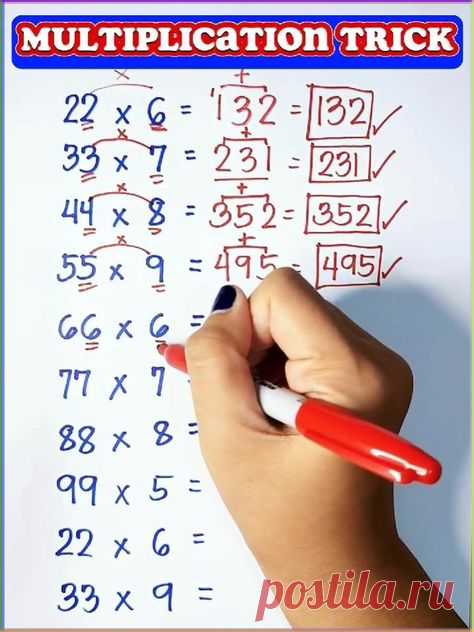 MULTIPLICATION TRICK
x +
22 x 6 = 132 = 132 ✓
x +
33 x 7 = 231 = 231 ✓
x +
44 x 8 = 352 = 352 ✓
x +
55 x 9 = 495 = 495 ✓
66 x 6 =
77 x 7 =
88 x 8 =
99 x 5 =
22 x 6 =
33 x 9 =
postila.ru